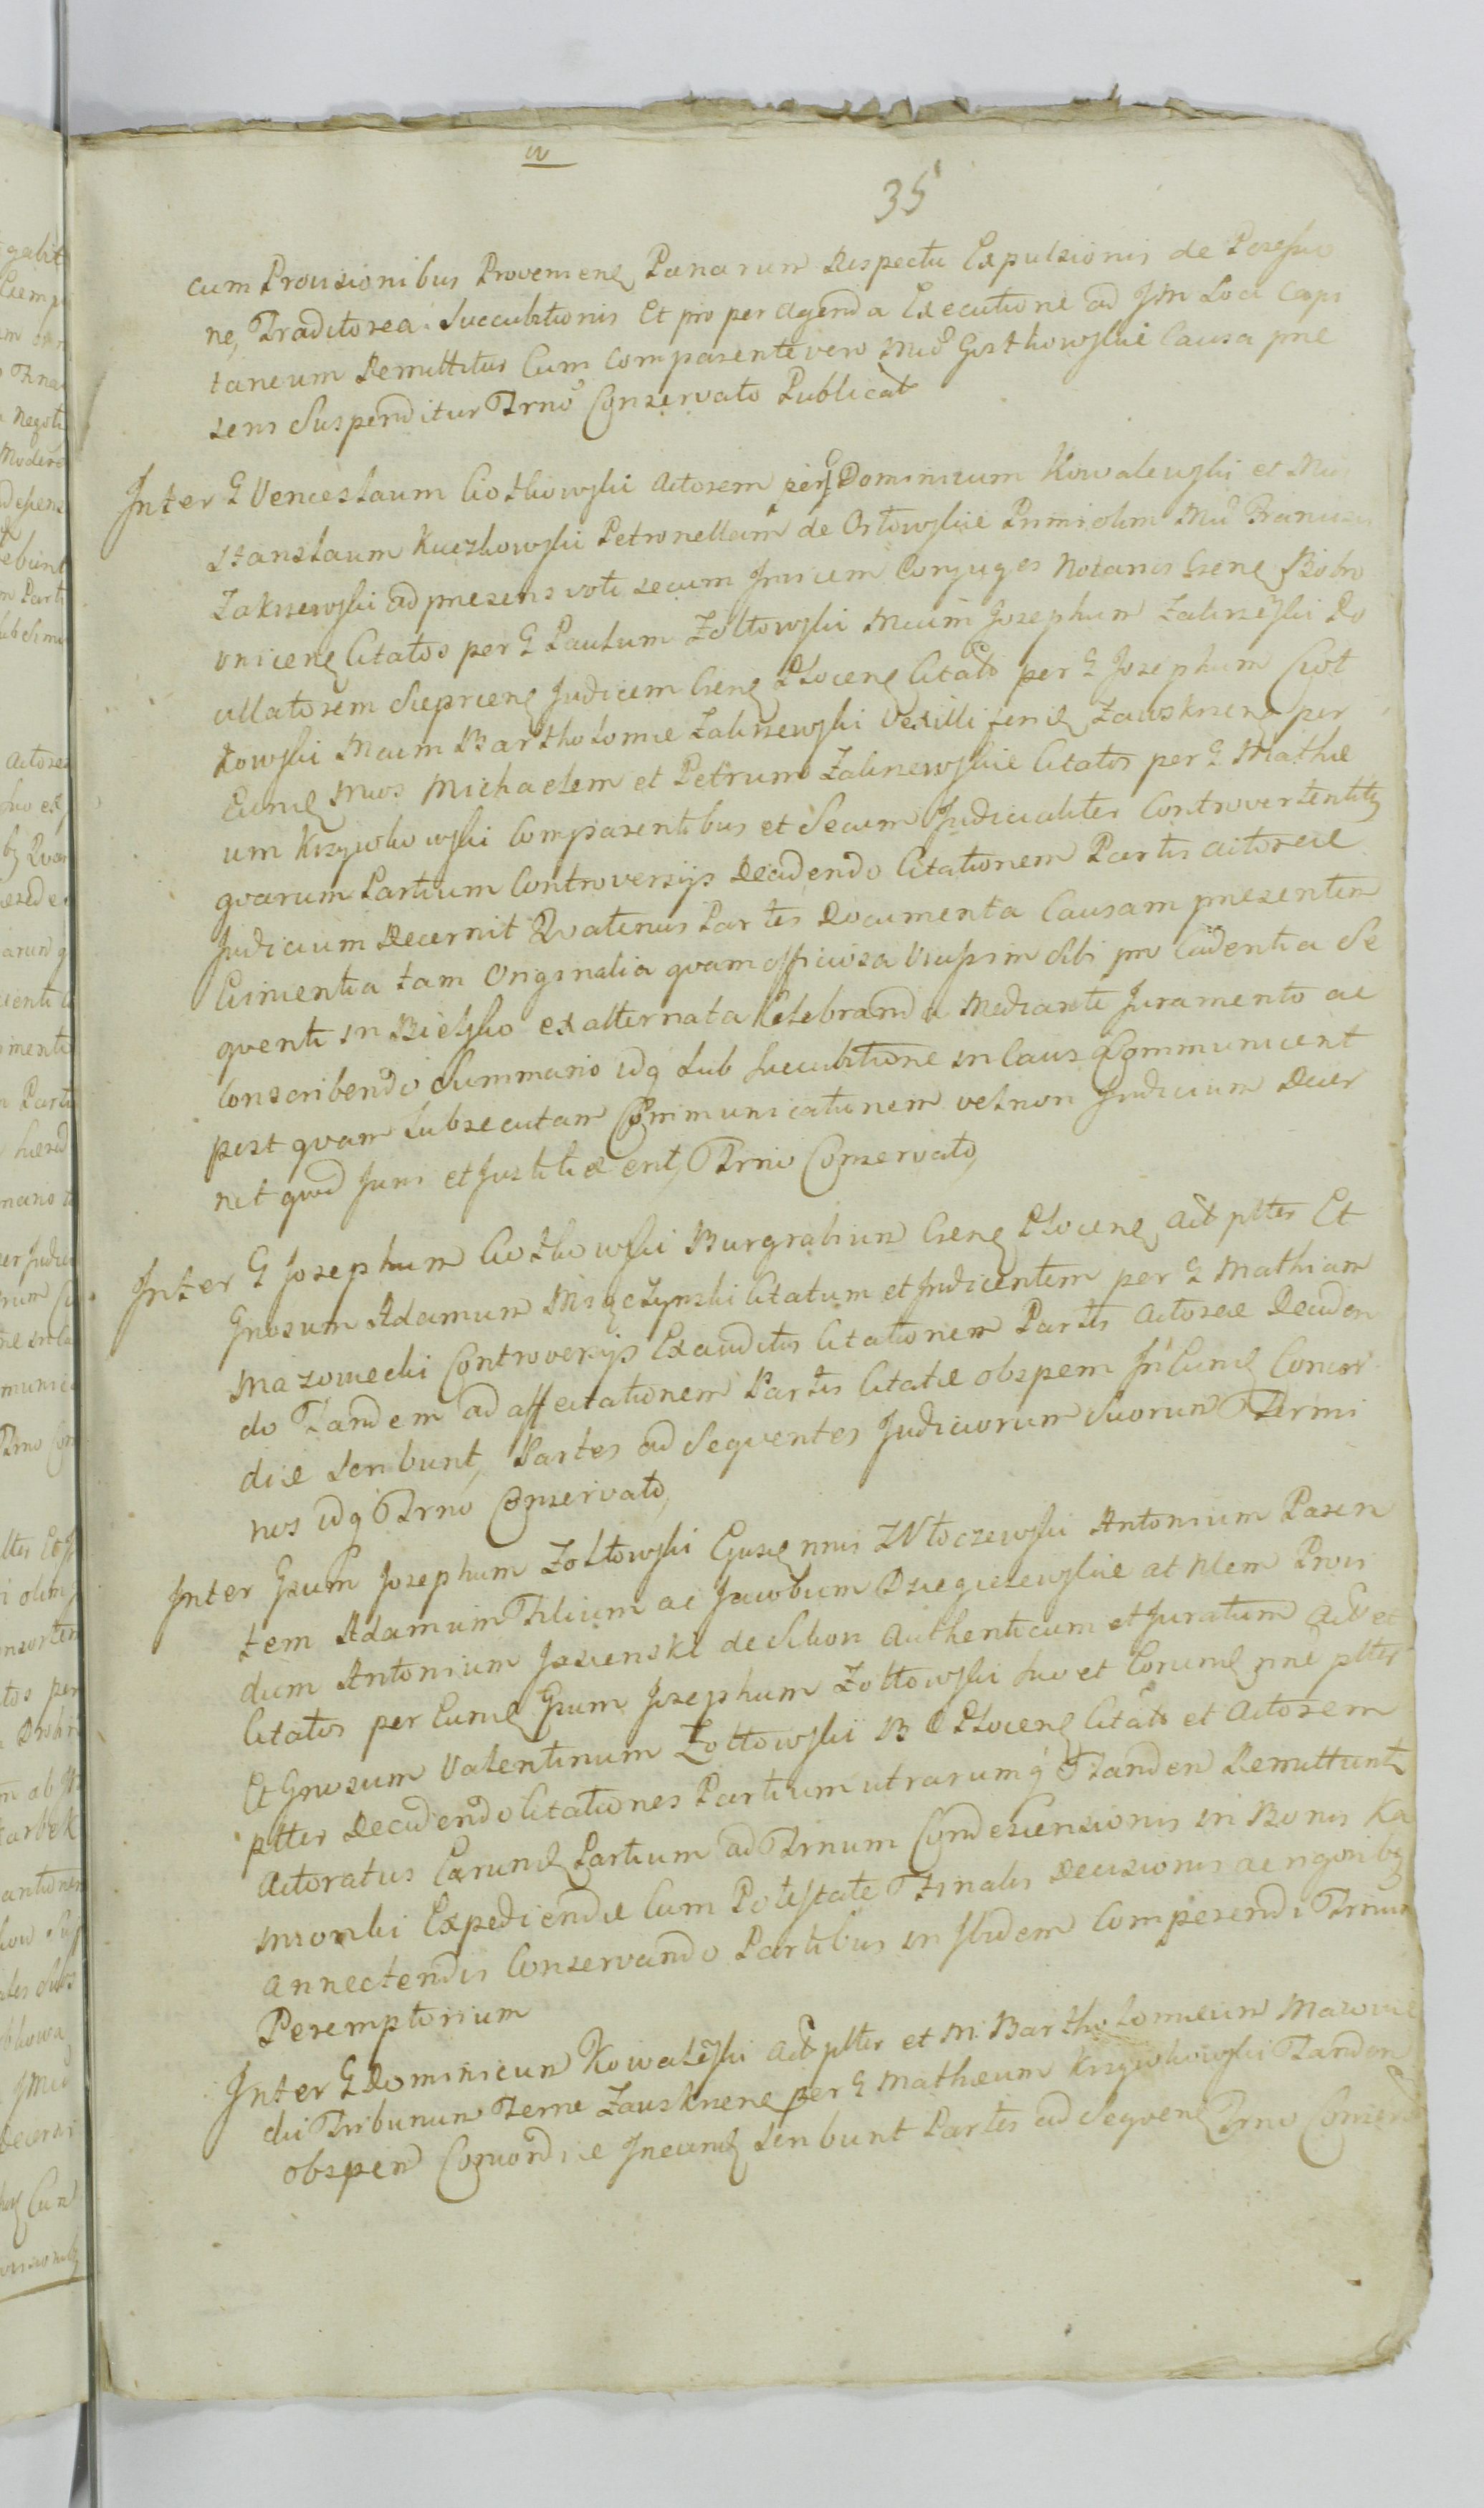 35
cum Provisionibus Provenienę Pænarum Respectu Expulsionis de Possessio
ne, Traditorea Succubitionis Et pro per agenda Executione ad Jin Loci Capi
taneum Remittitur Cum Comparente vero Mco Gosthowskie Causa præ
sens Suspenditur Trno Conservato Publicat
Inter G Venceslaum Ciothowski Actorem per G Dominicum Kowalewski et Mcis
Stanslaum Kuczkowski Petronellam de Orłowskie Primi olim Mci Francisci
Zakrzewski ad præsens voti secum Invicem Conjuges Notarios Csenę Bobro
vnicenę Citatos per G Paulum Zołtowski Mcum Josephum Zakrzewski Po
cillatorem Sieprcenę Judicem Csenę Plocenę Citato per G Josephum Ciot
kowski Mcum Bartholomæ Zakrzewski Vexilliferię Zawskrzenę per
Eundę Mcos Michaelem et Petrum Zakrzewskie Citatos per G Mathæ
um Krzywkowski Comparentibus et Secum Judicialiter Controvertentibꝫ
qvarum Partium Controversijs Decidendo Citationem Partis actoreæ
Judicium Decernit Qvatenus Partes Documenta Causam præsentem
Concernentia tam Originalia qvam officiosa Vicissim sibi pro Cadentia Se
qventi in Bielsko ex alternata Celebranda Mediante Juramento ac
Conscribendo Summario idq Sub Succubitione in Causa Communicent
post qvam Subsecutam Communicationem vel non Judicium Decer
net qvod Juris et Justitiæ erit, Trno Conservato,
Inter G Josephum Ciothowski Burgrabium Csenę Plocenę Act plter Et
Gnosum Adamum Miączynski Citatum et Judicentem per G Mathiam
Mazowiecki Controversijs Exauditis Citationem Partis Actoreæ Deciden
do Tandem ad affectationem Partis Citatæ ob spem In Eundę Concor
diæ Scribunt, Partes ad Seqventes Judiciorum Suorum Termi
nos idq Trno Conservato,
Inter Gsum Josephum Zołtowski Ejusę nnis Włoczewski Antonium Paren
tem Adamum Filium ac Jacobum Dzięgielewskie at Nlem Provi
dum Antonium Jasienski de Sikon Authenticum et Juratum Act et
Citatos per Eundę Gsum Josephum Zołtowski Suo et Eorundę nne plter
Et Gnosum Valentinum Zołtowski B C Plocenę Citato et Actorem
plter Decidendo Citationes Partium utrarumq Tandem Remittuntꝫ
Actoratus Earundę Partium ad Trnum Condescensionis in Bonis Ka
mionki Expediendæ Cum Potestate Finalis Decisionis ac rigoribꝫ
annectendis Conservando Partibus in Ibidem Comperendi Trnum
Peremptorium
Inter G Dominicum Kowalewski Act plter et M Bartholomæum Mazowie
cki Tribunum Terræ Zawskrzenę per G Mathæum Krzywkowski Tandem
ob spem Concordiæ Ineundę Scribunt Partes ad Seqvenę Trno Conserv